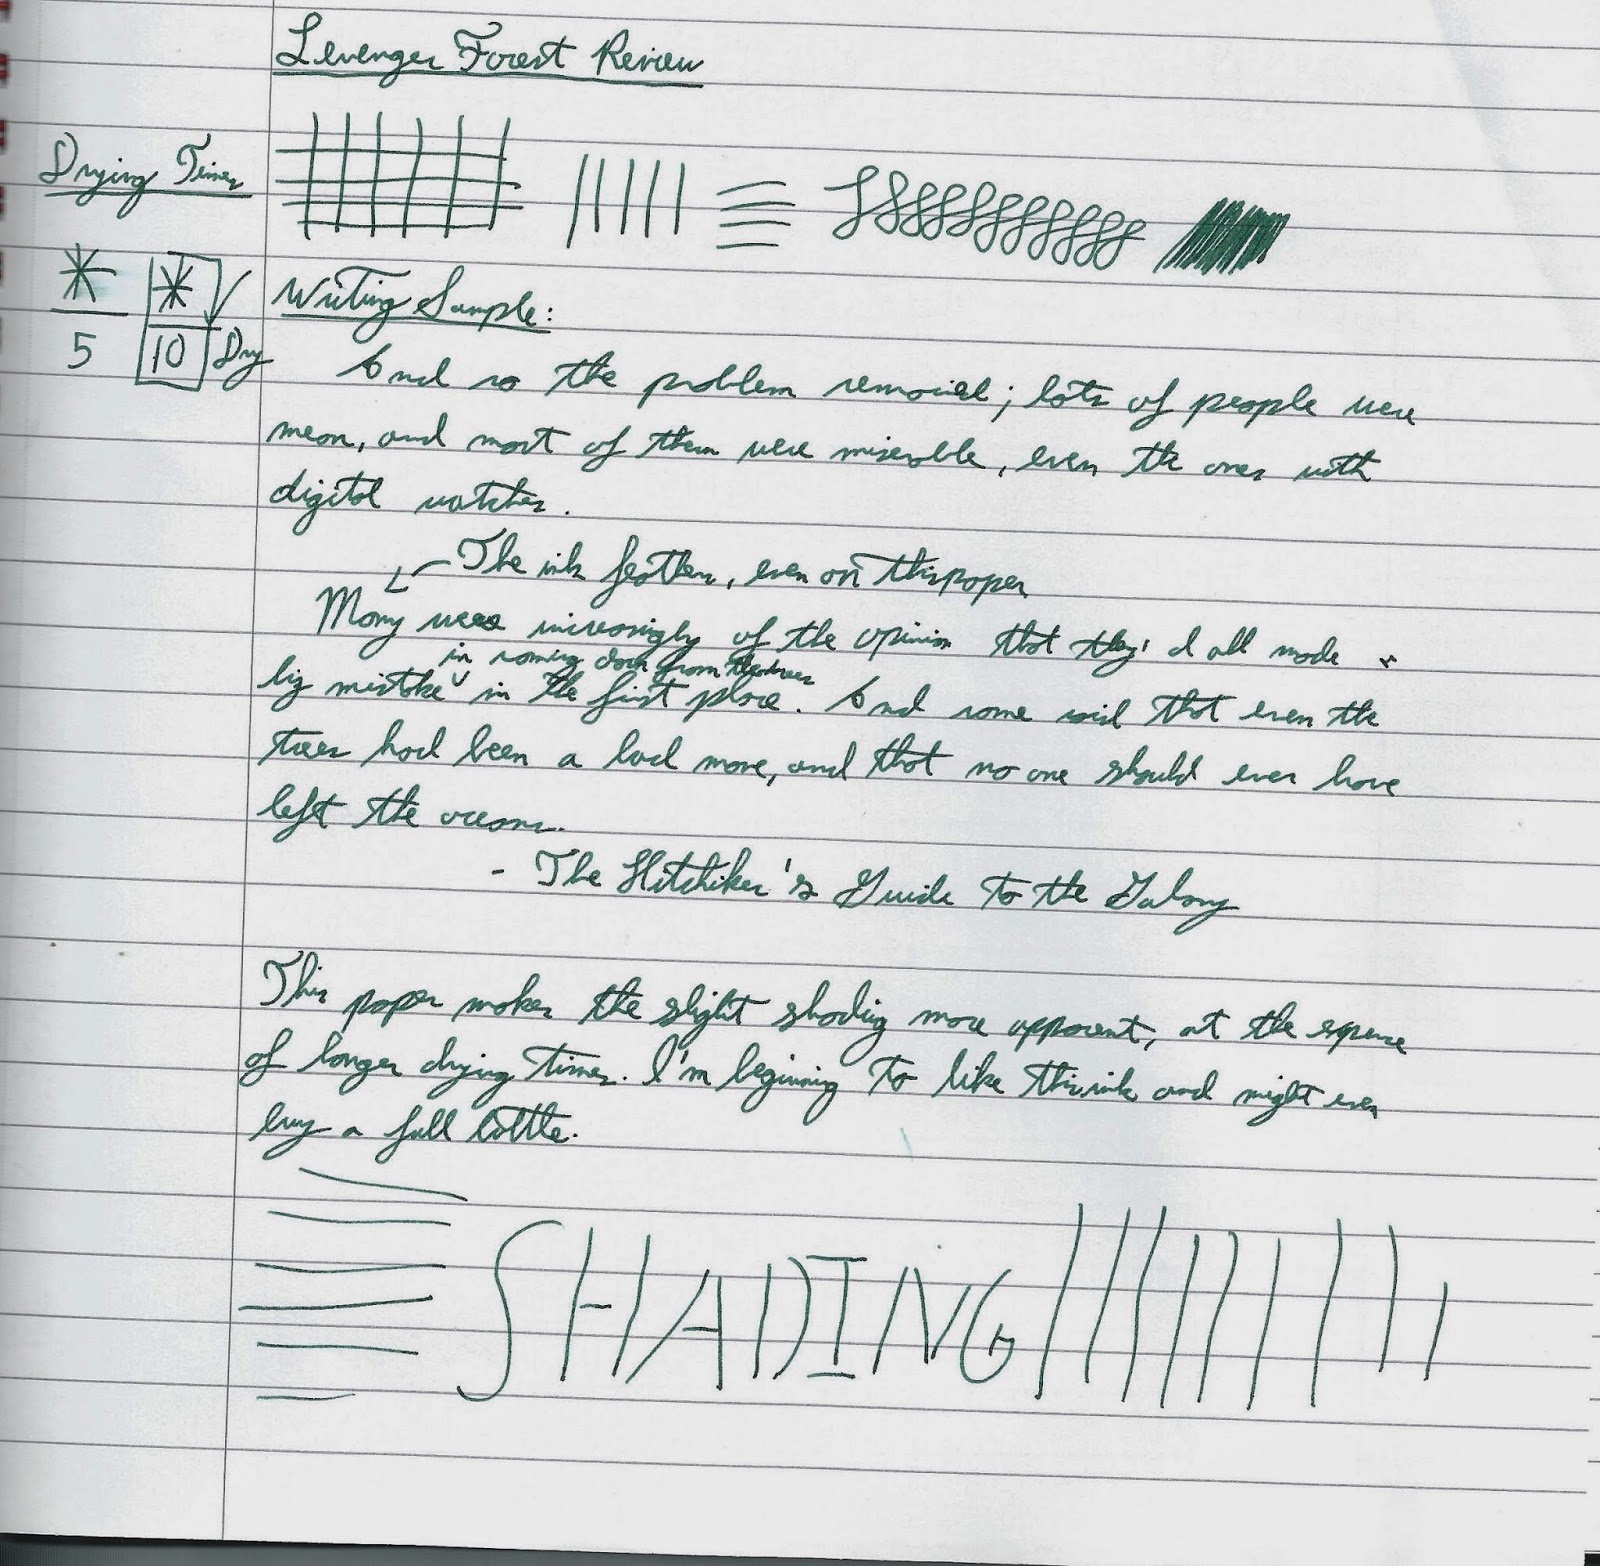 Levenger Forest Review
Drying Times
5
10 Dry
Writing Sample:
And so the problem remained; lots of people were
mean, and most of them were miserable, even the ones with
digital watches.
The ink feathers, even on this paper
Many were increasingly of the opinion that they'd all made a
in coming down from the trees
big mistake in the first place. And some said that even the
trees had been a bad move, and that no one should ever have
left the oceans.
- The Hitchiker's Guide to the Galaxy
This paper makes the slight shading more apparent, at the expense
of longer drying times. I'm beginning to like this ink and might even
buy a full bottle.
SHADING